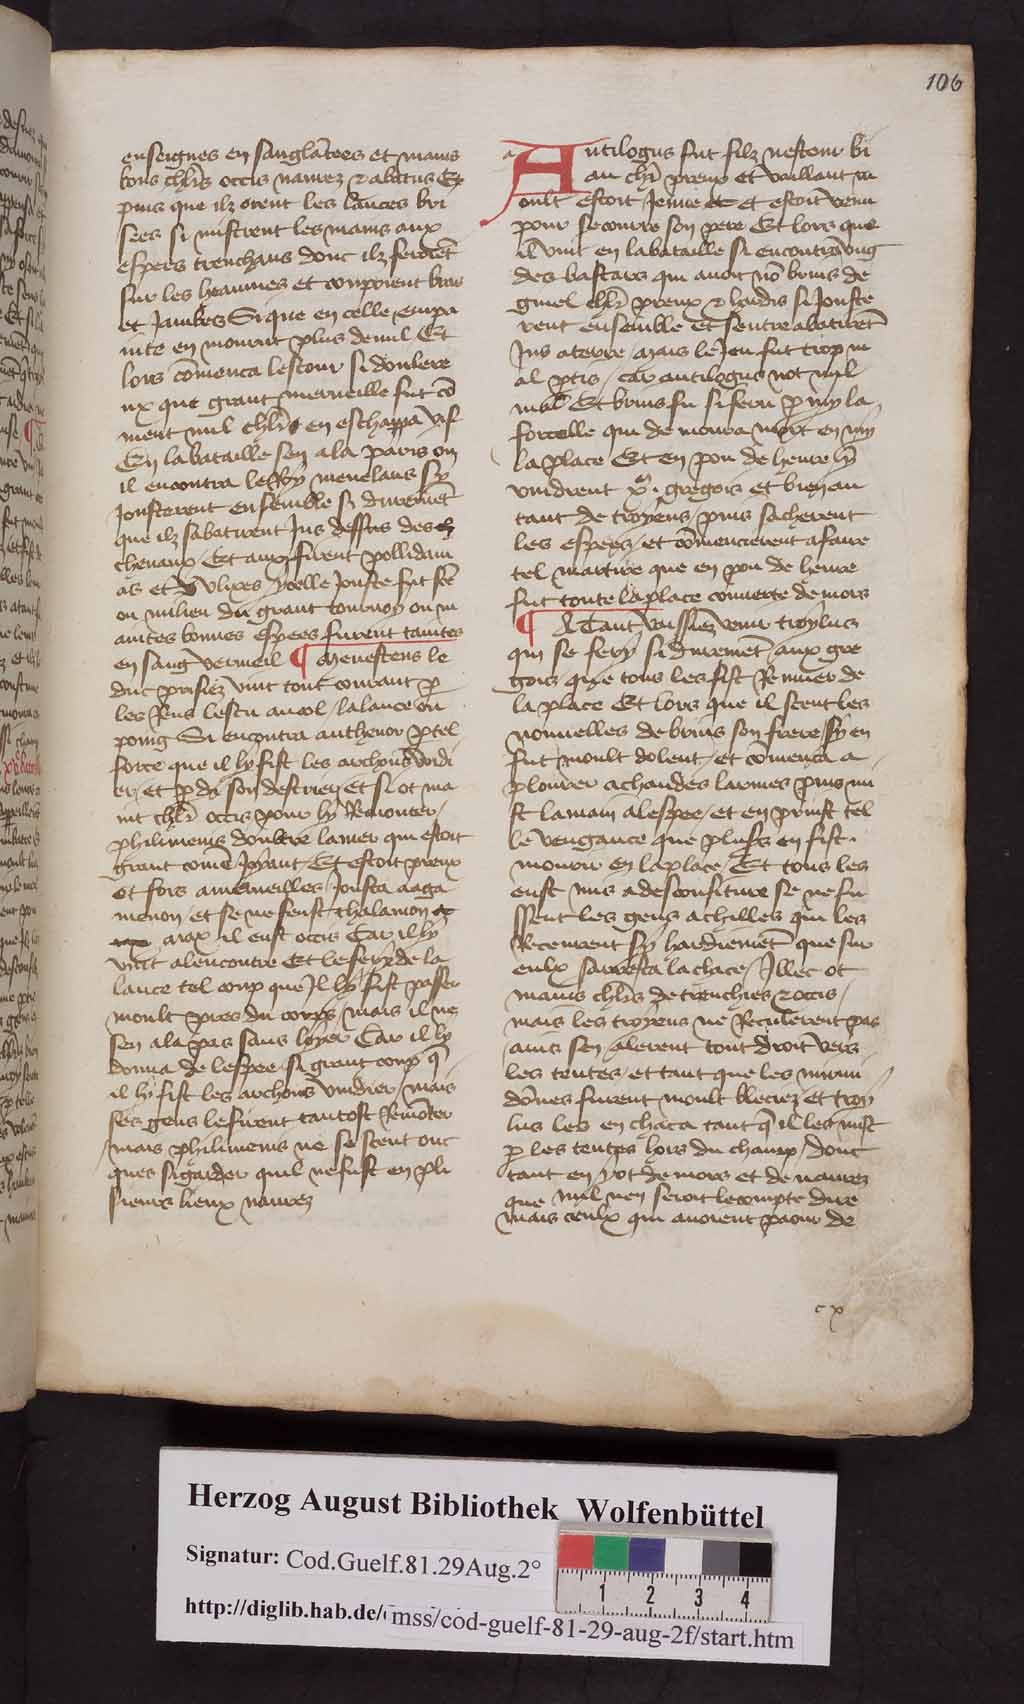 106
enseignes en sanglātees et mains
bons chl̄rs occis naurez ⁊ abatus Et
puis que ilz orent les lances bri
sees si mistrent les mains aux
espees trenchans donc ilz feroiēt
sur les heaumes et coupoient bras
et Jambes Si que en celle empa
inte en mourut plus de mil Et
lors cōmenca lestour si doulere
ux que grant merueille fut cō
ment nul chl̄r en eschappa vif
En la bataille sen ala paris ou
il encontra le Roy menelaus sy
Jousterent ensemble si duremēt
que ilz sabatirent Jus dessus des
cheuaux Et aux furent pollidam
as et Vlixes ycelle Jouste fut fēe
ou milieu du grant tournoy ou m
aintes bonnes espees furent taintes
en sang vermeil ¶ Menesteus le
duc prisiez vint tout courant p̄
les Rens lescu au col / la lance ou
poing Si encontra anthenor p tel
force que il ly fist les archons vuidi
er / et p dā son destrier et si ot ma
int chl̄r occis pour ly Remonter /
philimenis doultre la mer qui estoit
grant comē Joyant / Et estoit preux
et fors a merueilles / Jousta a aga
menon / et se ne feust thalamon
aiax il eust occis Car il ly
vint alencontre Et le fery de la
lance tel coup que Jl ly fist passer
moult pres du corps mais il ne
sen ala pas sans loyer Car il ly
donna de lespee si grant coup q̄
il ly fist les archons vuidier / mais
ses gens le furent tantost Remōter
mais philimenis ne se sceut onc
ques si garder quil ne fust en plu
sieurs lieux naurez
a
Antilogus fut filz nestour bi
au chl̄r preux et vaillant m
oult estoit Jeune et estoit venu
pour secourre son pere Et lors que
il vint en la bataille si encontra vng
des bastars qui auoit nō bruns de
gimel chl̄r preux ⁊ hardis si Jouste
rent ensemble et sentre abatirēt
Jus a terre / mais le Jeu fut trop m
al ptis / car antilogus not nul
mal Et bruns fu si feru p my la
forcelle qui demoura mort en my
la place Et en pou de heure ly
vindrent gregois et bien au
tant de troyens / puis sacherent
les espees / et cōmencierent a faire
tel martire que en pou de heure
fut toute la place couuerte de mors
¶ A Tant vaissiez venir troylus
qui se fery si duremēt aux gre
gois que tous les fist Remuer de
la place Et lors que il sceut les
nouuelles de bruns son frere Sy en
fut moult dolent / et cōmenca a
plourer a chaudes larmes puis mi
st la main a lespee / et en prinst tel
le vengance que plusrs en fist
mourir en la place / Et tous les
eust mis a desconfiture se ne fu
ssent les gens achilles qui les
Recourent sy hardiemēt que sur
eulx sarresta la chace / Jllec ot
mains chl̄rs detrenchies ⁊ occis /
mais les troyens ne Reculerent pas
ains sen alerent tout droit vers
les tentes / et tant que les mirmi
dōnes furent moult bleciez et troy
lus les en chaca tant q̄ il les mist
p les tentes hors du champ / dont
tant en yot de mors et de naurez
que nul nen seroit le compte dire
mais ceulx qui auoient paour de
cx
Herzog August Bibliothek Wolfenbüttel
Signatur: Cod.Guelf.81.29Aug.2°
http://diglib.hab.de/mss/cod-guelf-81-29-aug-2f/start.htm
1 2 3 4